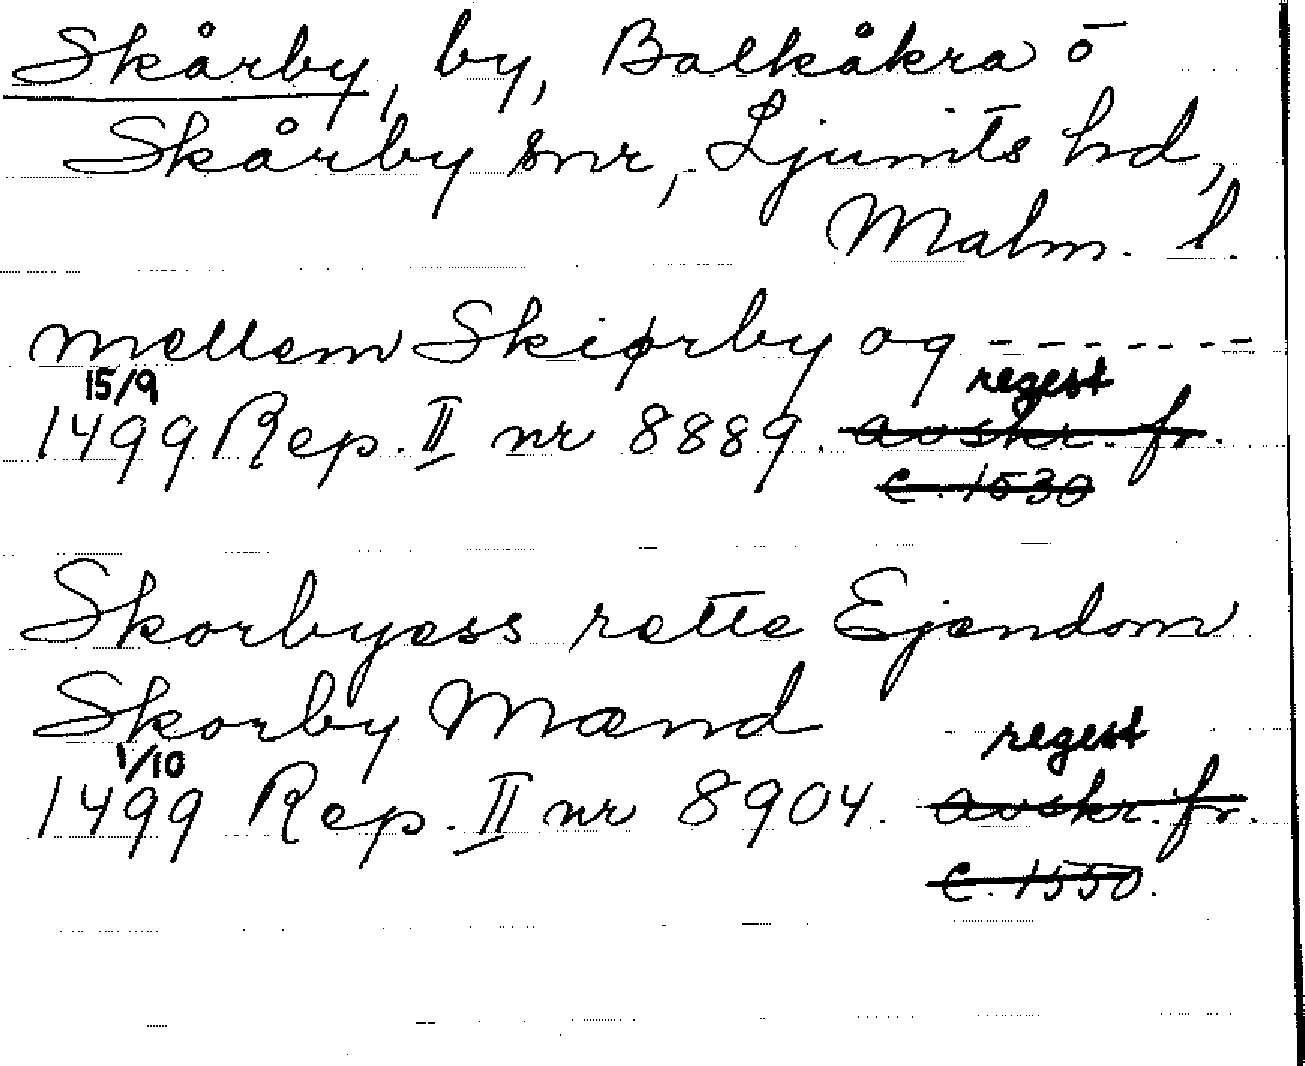 Skårby, by, Balkåkra o
Skårby snr, Ljunits hd,
Malm. l.
mellem Skiørby og - - - - - - -
15/9 regest
1499 Rep. II nr 8889. avskr. fr.
c. 1530
Skorbyess rette Ejendom
Skorby Mænd
1/10 regest
1499 Rep. II nr 8904. avskr. fr.
c. 1550.